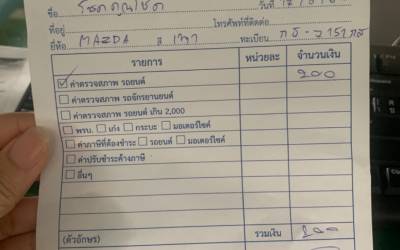 ชื่อ โชคคูณโชค วันที่
ที่อยู่ โทรศัพท์ที่ติดต่อ
ยี่ห้อ MAZDA 3 เทา ทะเบียน
รายการ หน่วยละ จำนวนเงิน
☑ ค่าตรวจสภาพ รถยนต์ 200
☐ ค่าตรวจสภาพ รถจักรยานยนต์
☐ ค่าตรวจสภาพ รถยนต์ เกิน 2,000
☐ พรบ. ☐ เก๋ง ☐ กระบะ ☐ มอเตอร์ไซค์
☐ ค่าภาษีที่ต้องชำระ ☐ รถยนต์ ☐ มอเตอร์ไซค์
☐ ค่าปรับชำระค้างภาษี
☐ อื่นๆ
(ตัวอักษร) รวมเงิน 200